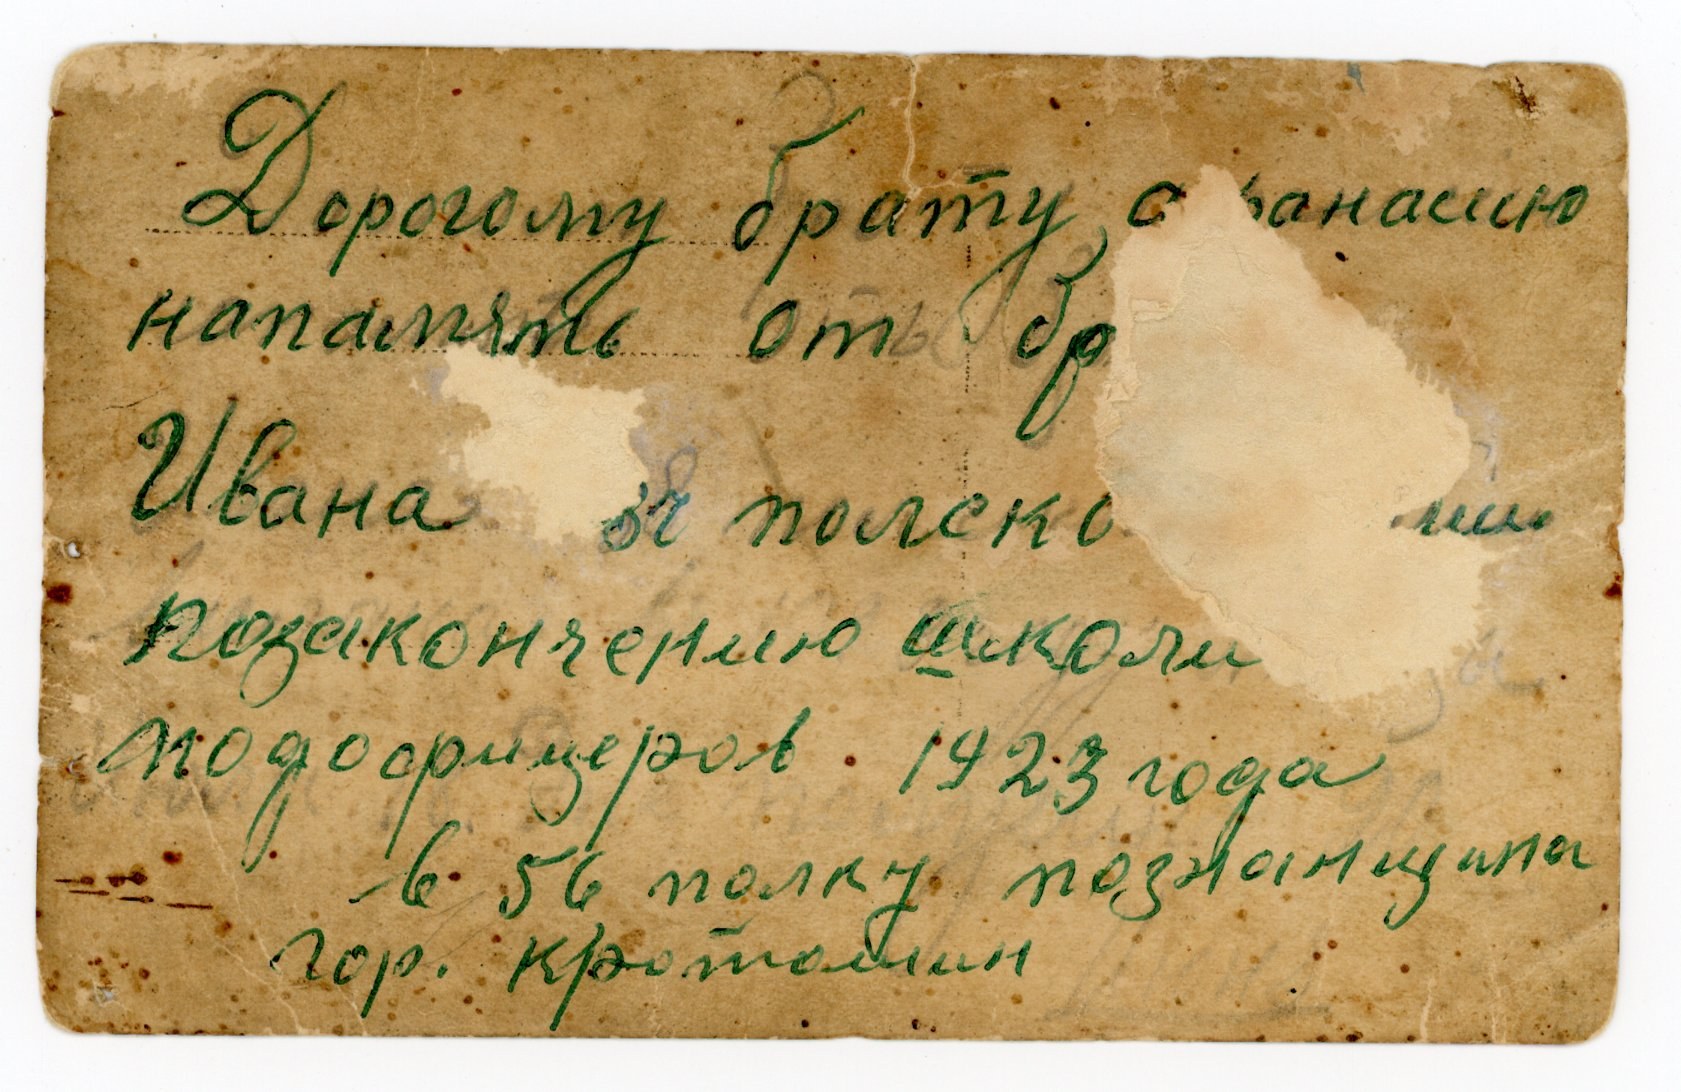 Дорогому брату
напамять от
Ивана полско
позакончению школи
подофицеров. 1923 года
в 56 полку познанщина
гор. кротошин